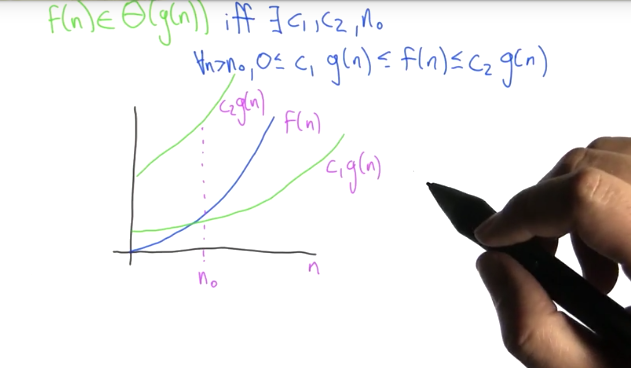 f(n) ∈ Θ(g(n)) iff ∃ c₁, c₂, n₀
∀n>n₀, 0 ≤ c₁ g(n) ≤ f(n) ≤ c₂ g(n)
c₂g(n)
f(n)
c₁g(n)
n
n₀